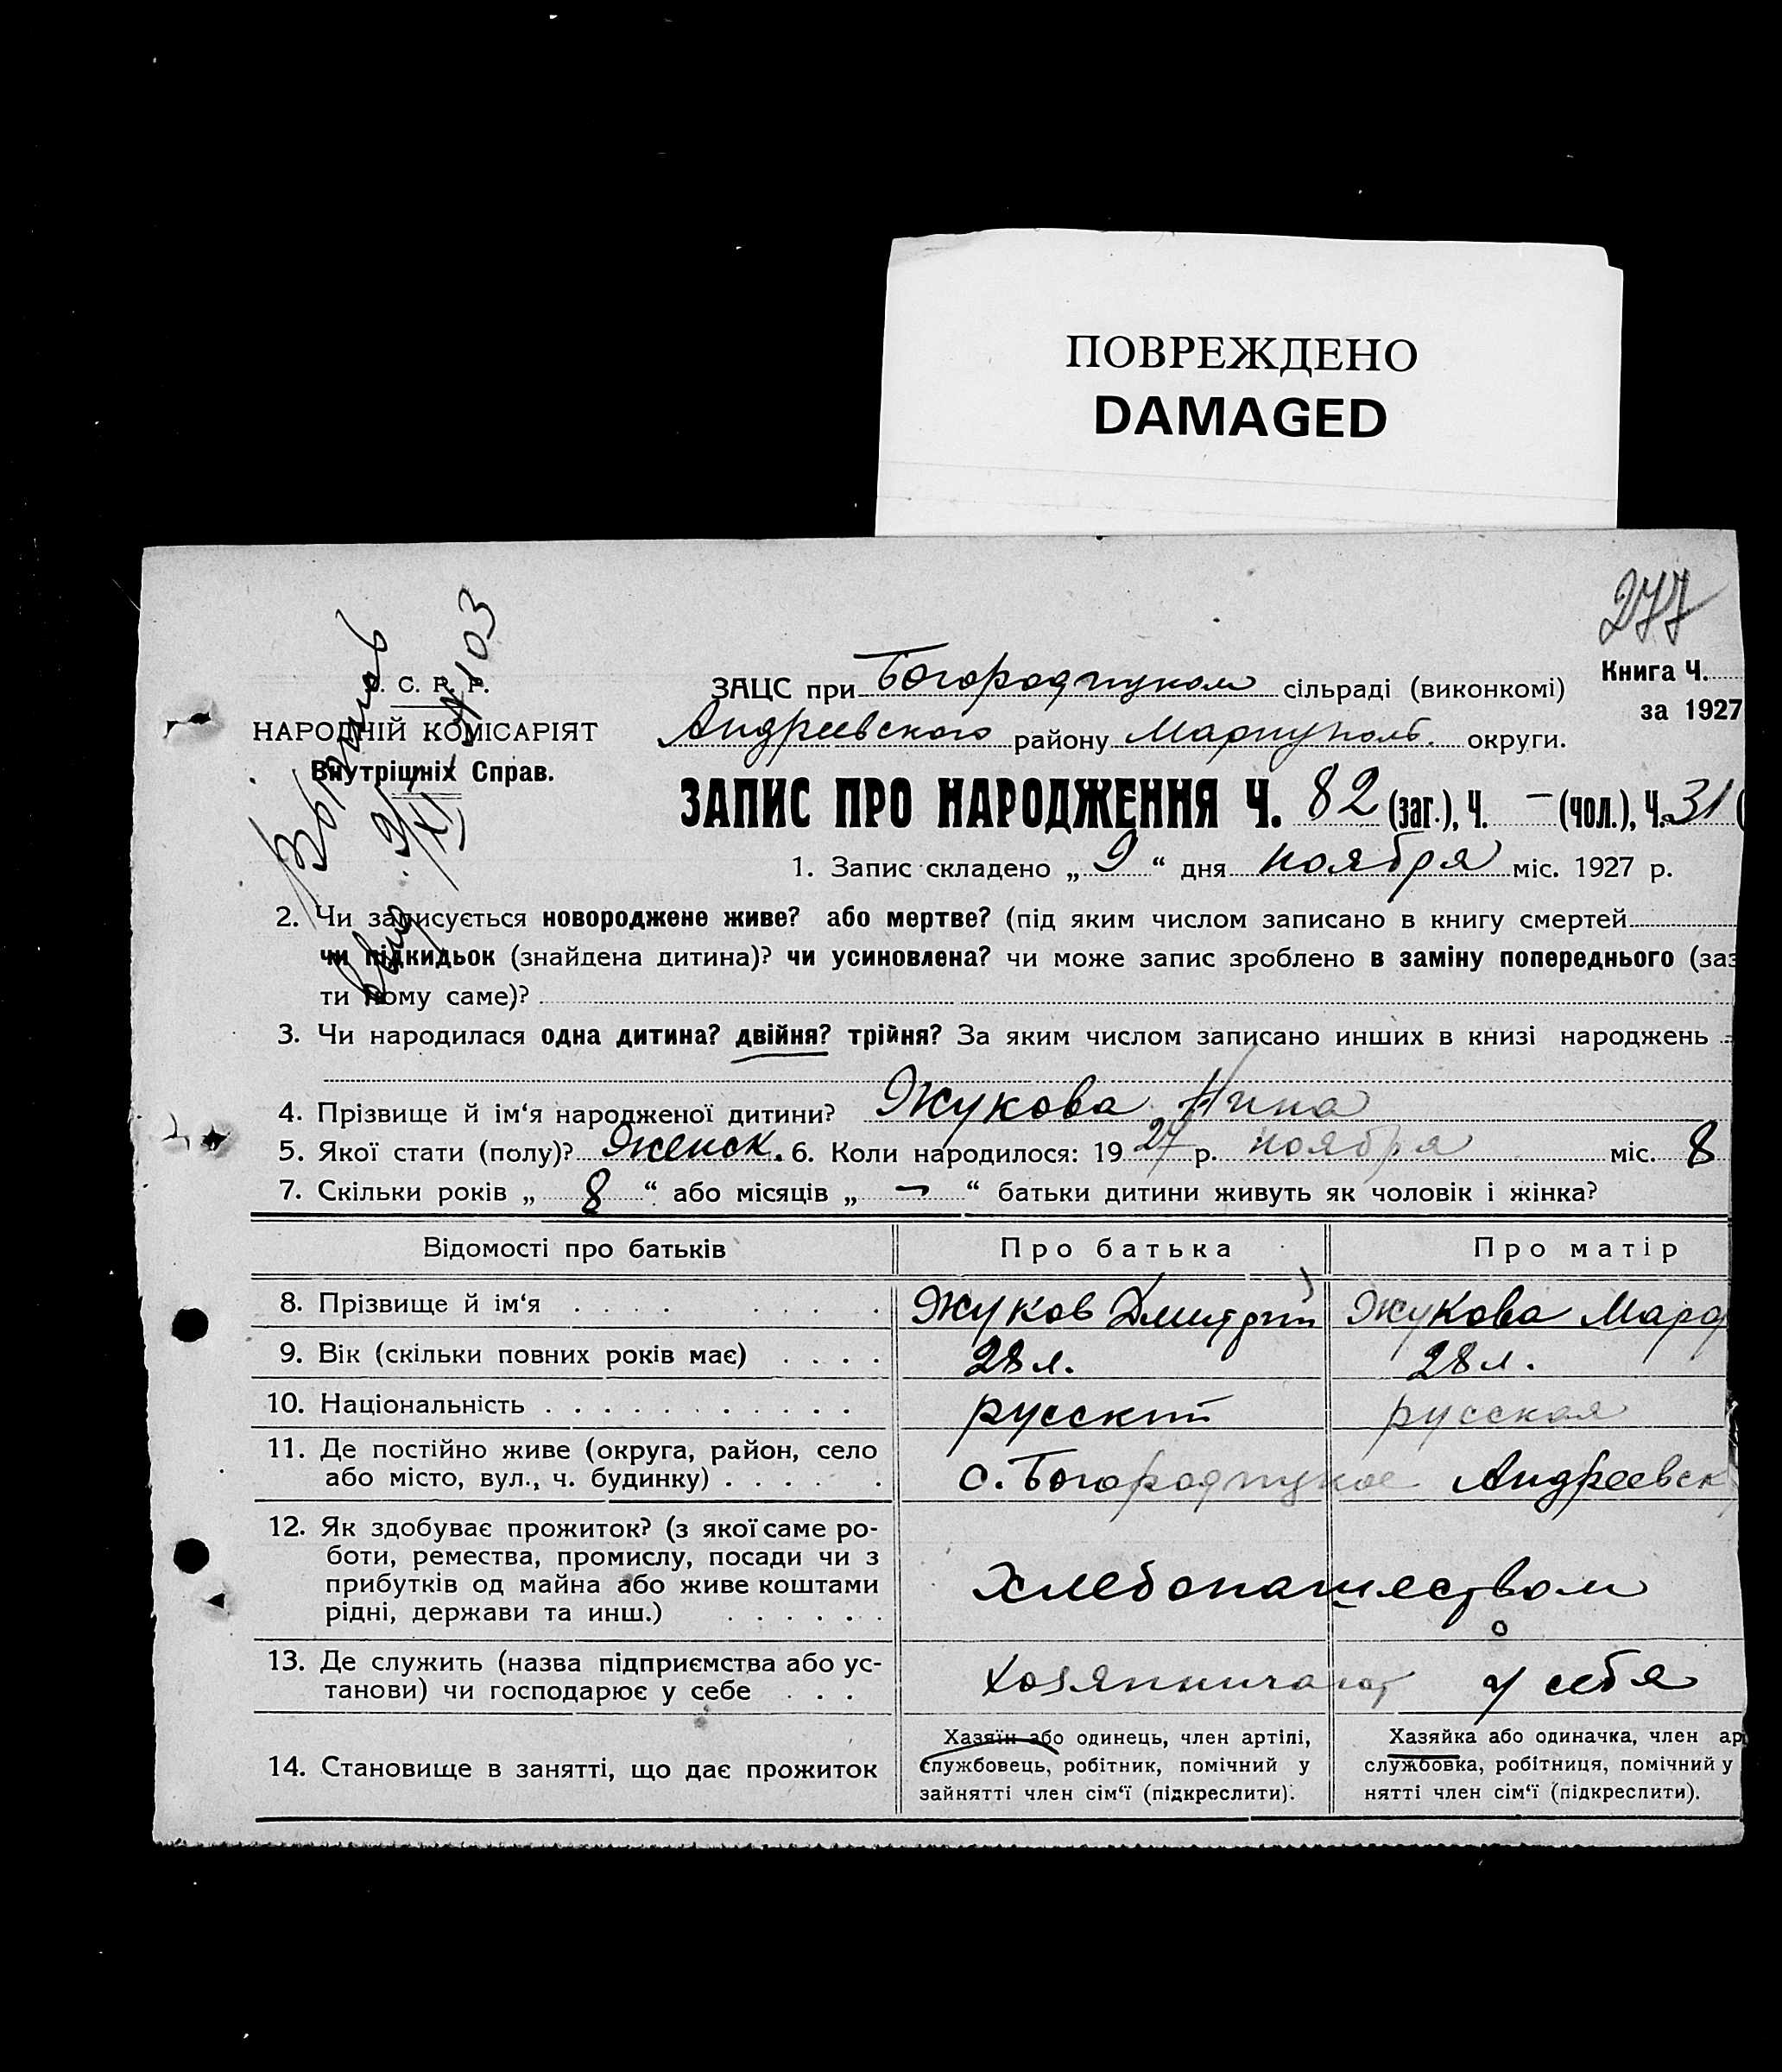 ПОВРЕЖДЕНО
DAMAGED
277
С. Р. Р.
НАРОДНІЙ КОМІСАРІЯТ
Внутрішніх Справ.
ЗАЦС при Богородицком сільраді (виконкомі)
Книга Ч.
за 1927
Андреевского району Мариуполь. округи.
ЗАПИС ПРО НАРОДЖЕННЯ Ч. 82 (заг.), Ч. — (чол.), Ч. 31 (
1. Запис складено „ 9 “ дня ноября міс. 1927 р.
2. Чи записується новороджене живе? або мертве? (під яким числом записано в книгу смертей
чи підкидьок (знайдена дитина)? чи усиновлена? чи може запис зроблено в заміну попереднього (заз
ти чому саме)?
3. Чи народилася одна дитина? двійня? трійня? За яким числом записано инших в книзі народжень
4. Прізвище й ім‘я народженої дитини? Жукова Нина
5. Якої стати (полу)? Женск. 6. Коли народилося: 19 27 р. ноября міс. 8
7. Скільки років „ 8 “ або місяців „ — “ батьки дитини живуть як чоловік і жінка?
Відомості про батьків Про батька Про матір
8. Прізвище й ім‘я . . . . Жуков Дмитрий Жукова Мар
9. Вік (скільки повних років має) . . . . 28 л. 28 л.
10. Національність . . . . русский русская
11. Де постійно живе (округа, район, село
або місто, вул., ч. будинку) . . . . с. Богородицкое Андреевск
12. Як здобуває прожиток? (з якої саме ро-
боти, ремества, промислу, посади чи з
прибутків од майна або живе коштами
рідні, держави та инш.) . . . . Хлебопашеством
13. Де служить (назва підприємства або ус-
танови) чи господарює у себе . . . Хозяйничают у себя
14. Становище в занятті, що дає прожиток
Хазяїн або одинець, член артілі,
службовець, робітник, помічний у
зайнятті член сім‘ї (підкреслити).
Хазяйка або одиначка, член ар
службовка, робітниця, помічний у
нятті член сім‘ї (підкреслити).